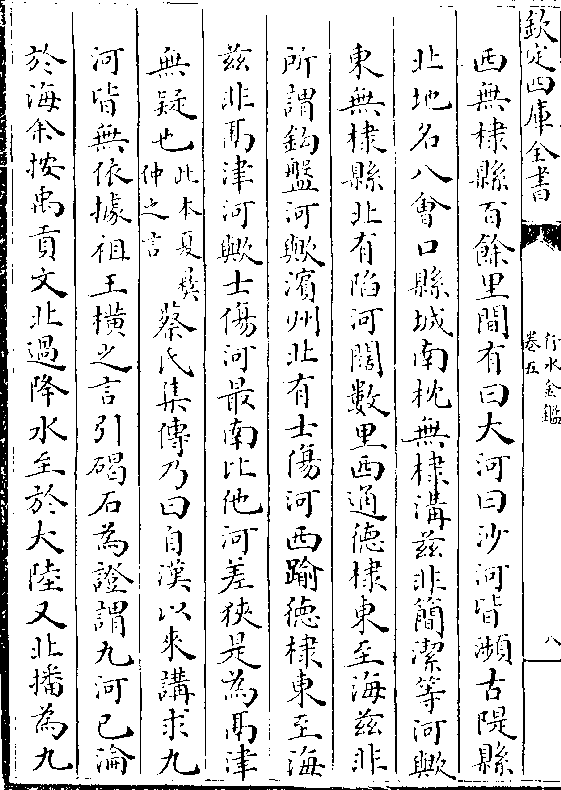 欽定四庫全書
行水金鑑
卷五
八
西無棣縣百餘里間有曰大河曰沙河皆瀕古隄縣
北地名八會口縣城南枕無棣溝茲非簡潔等河歟
東無棣縣北有陷河闊數里西通德棣東至海茲非
所謂鈎盤河歟濱州北有士傷河西踰德棣東至海
茲非鬲津河歟士傷河最南比他河差狹是為鬲津
無疑也此本夏㒒仲之言蔡氏集傳乃曰自漢以來講求九
河皆無依據祖王橫之言引碣石為證謂九河已淪
於海余按禹貢文北過降水至於大陸又北播為九